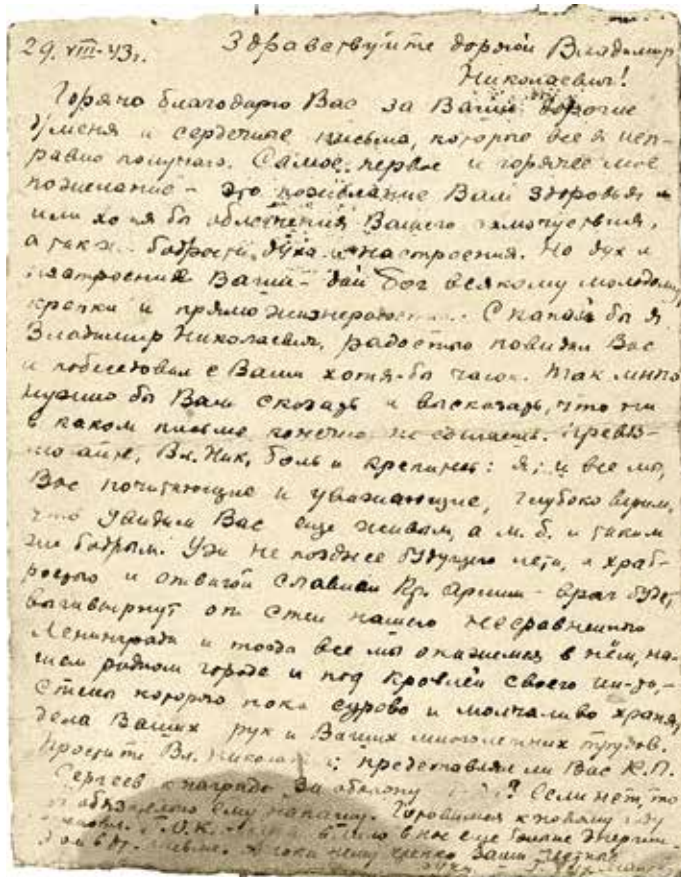 29.VIII-43г. Здравствуйте дорогой Владимир
Николаевич!
Горячо благодарю Вас за Ваши дорогие
для меня и сердечные письма, которые все я исп-
равно получаю. Самое первое и горячее мое
пожелание - это пожелание Вам здоровья и
или хотя бы облегчения Вашего самочувствия,
а также бодрости духа и настроения. Но дух и
настроение Ваши - дай Бог всякому молодому,
крепки и прямо С какой бы я
Владимир Николаевич, радостью повидал Вас
и побеседовал с Вами хотя-бы часок. Так много
нужно бы Вам сказать и высказать, что ни
в каком письме конечно не Превоз-
могайте, Вл. Ник, боль и крепитесь: я, и все мы,
Вас почитающие и уважающие, глубоко верим,
что увидим Вас еще живым, а м. б. и таким
же бодрым. Уж не позднее будущего лета, и храб-
ростью и отвагой славной Кр. Армии - враг будет
вышвырнут от стен нашего несравненного
Ленинграда и тогда все мы окажемся в нём, на-
шем родном городе и под кровлей своего ин-та, -
стены которого пока сурово и молчаливо хранят
дела Ваших рук и Ваших многолетних трудов.
Простите Вл. представлял ли Вас К.П.
Сергеев к награде за оборону Если нет, то
я обязательно ему напишу. Готовимся к новому году
еще более
Ваши